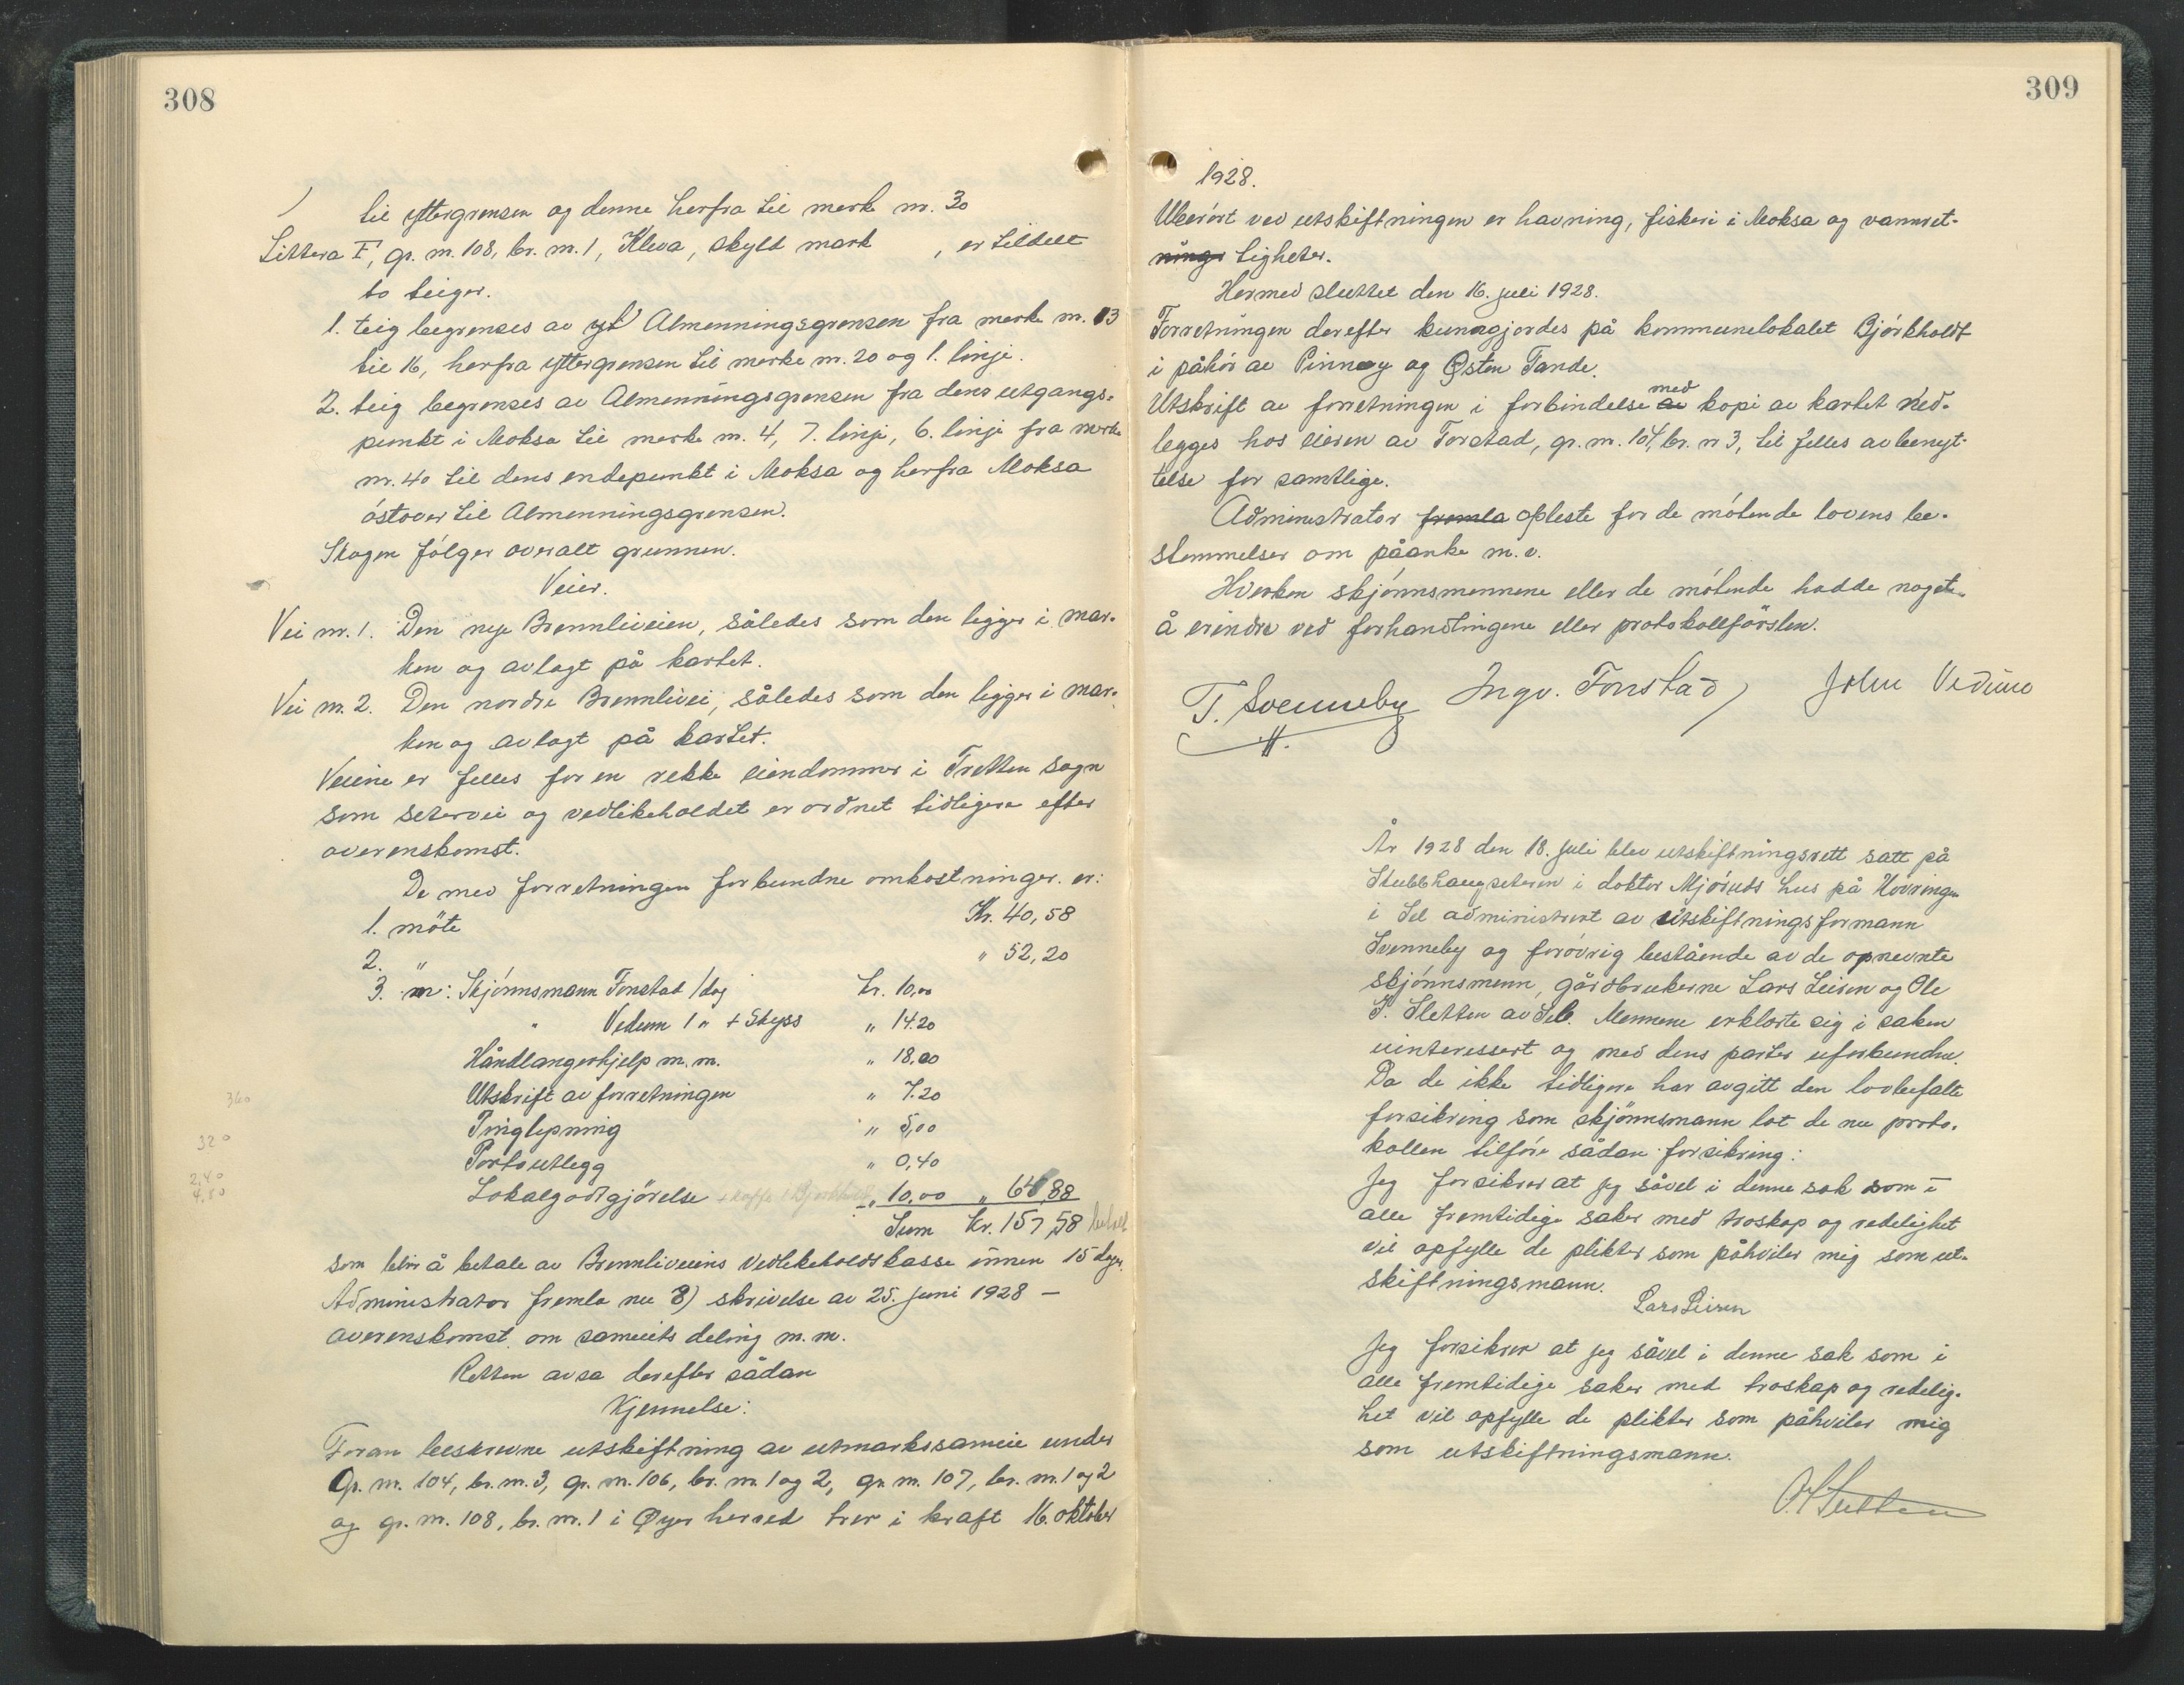 308
til yttergrensen og denne herfra til merke nr. 30
Littera F, gr. nr. 108, br. nr. 1, Kleva, skyld mark , er tildelt
to teiger.
1. teig begrenses av Almenningsgrensen fra merke nr. 13
til 16, herfra yttergrensen til merke nr. 20 og 1. linje.
2. teig begrenses av Almenningsgrensen fra dens utgangs-
punkt i Moksa til merke nr. 4, 7. linje, 6. linje fra merke
nr. 40 til dens endepunkt i Moksa og herfra Moksa
östover til Almenningsgrensen.
Skogen fölger overalt grunnen.
Veier.
Vei nr. 1. Den nye Brennliveien, således som den ligger i mar-
ken og avlagt på kartet.
Vei nr. 2. Den nordre Brennlivei, således som den ligger i mar-
ken og avlagt på kartet.
Veiene er felles for en rekke eiendommer i Tretten sogn
som setervei og vedlikeholdet er ordnet tidligere efter
overenskomst.
De med forretningen forbundne omkostninger er:
1. möte Kr. 40,58
2. " " 52,20
3. m: Skjönnsmann Fonstad 1 dag Kr. 10,00
" Vedum 1 " + Skyss " 14.20
Håndlangerhjelp m. m. " 18,00
Utskrift av forretningen " 7.20
Tinglysning " 5,00
Portoutlegg " 0,40
Lokalgodtgjörelse + kaffe i Bjørkholdt " 10,00 " 64,88
Sum Kr. 157,58 betalt
360
320
2,40
4,80
som blir å betale av Brennliveiens Vedlikeholdskasse innen 15 dager.
Administrator fremla nu 8) skrivelse av 25. juni 1928 –
overenskomst om sameiets deling m. m.
Retten avsa derefter sådan
Kjennelse:
Foran beskrevne utskiftning av utmarkssameie under
Gr. nr. 104, br. nr. 3, gr. nr. 106, br. nr. 1 og 2, gr. nr. 107, br. nr. 1 og 2
og gr. nr. 108, br. nr. 1 i Øyer herred trer i kraft 16. oktober
309
1928.
Uberört ved utskiftningen er havning, fiskeri i Moksa og vannret-
nings tigheter.
Hermed sluttet den 16. juli 1928.
Forretningen derefter kunngjordes på kommunelokalet Bjórkholdt
i påhör av Pinnøy og Østen Tande.
med
Utskrift av forretningen i forbindelse av kopi av kartet ned-
legges hos eieren av Forstad, gr. nr. 104, br. nr 3, til felles avbenyt-
telse for samtlige.
Administrator fremla opleste for de mötende lovens be-
stemmelser om påanke m. v.
Hverken skjönnsmennene eller de mötende hadde noget
å erindre ved forhandlingene eller protokollförslen.
T. Svenneby Ingv. Fonstad John Vedum
År 1928 den 18. juli blev utskiftningsrett satt på
Stubbhaugseteren i doktor Mjöruds hus på Hovringen
i Sel administrert av utskiftningsformann
Svenneby og forövrig bestående av de opnevnte
skjönnsmenn, gårdbrukerne Lars Leiren og Ole
J. Sletten av Sel. Mennene erklærte sig i saken
uinteressert og med dens parter uforbundne.
Da de ikke tidligere har avgitt den lovbefalte
forsikring som skjönnsmann lot de nu proto-
kollen tilföre sådan forsikring:
Jeg forsikrer at jeg såvel i denne sak som i
alle fremtidige saker med troskap og redelighet
vil opfylle de plikter som påhviler mig som ut-
skiftningsmann.
Lars Leiren
Jeg forsikrer at jeg såvel i denne sak som i
alle fremtidige saker med troskap og redelig-
het vil opfylle de plikter som påhviler mig
som utskiftningsmann.
O J Sletten